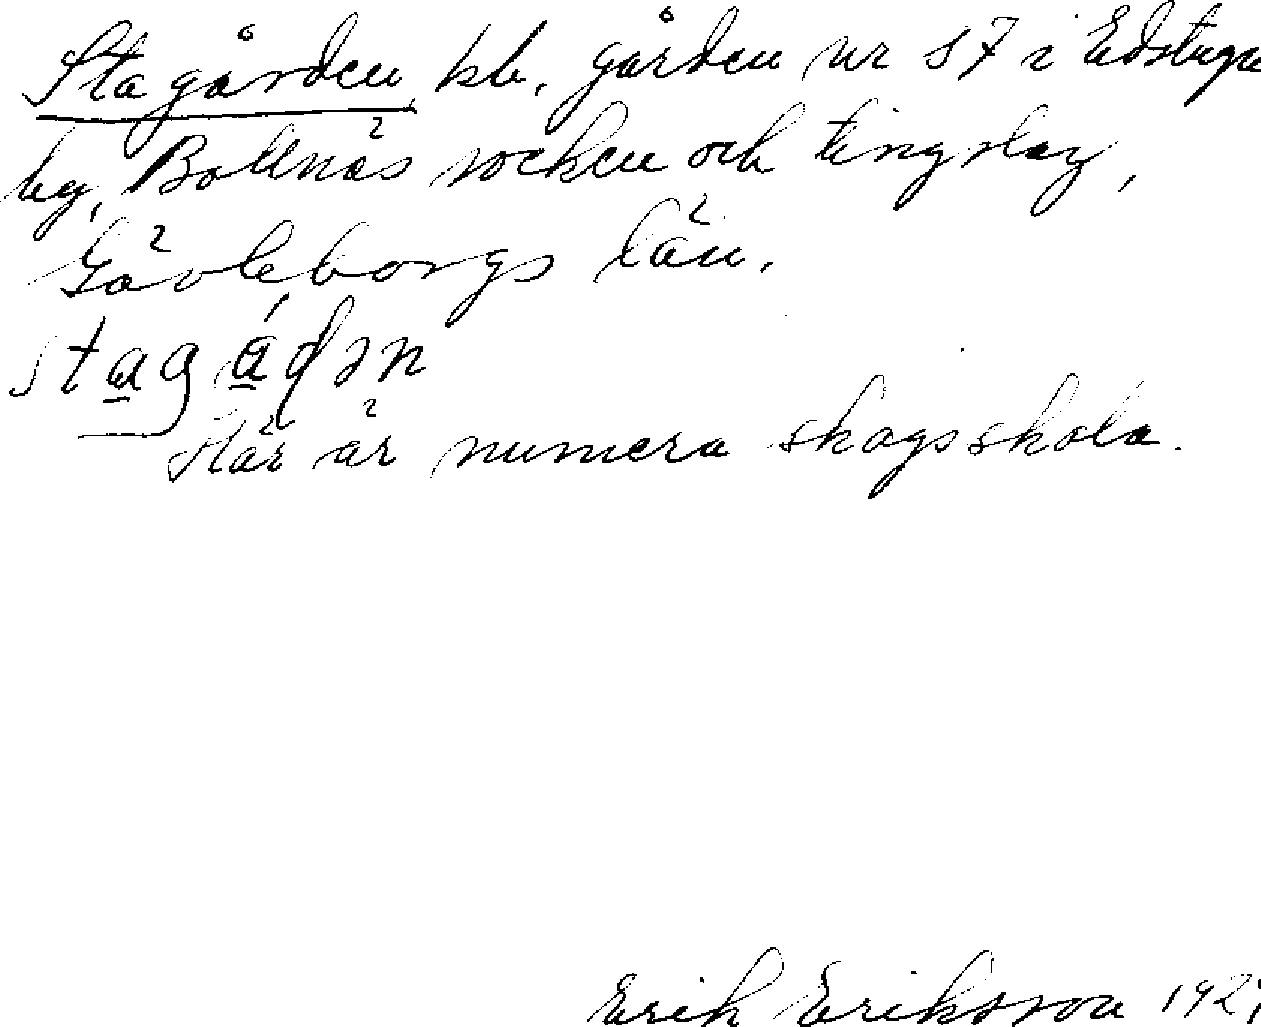 Stagården, kb. gården nr 57 i Edstuga
by, Bollnäs socken och tingslag,
Gävleborgs län.
stagådən
Här är numera skogsskola.
Erik Eriksson